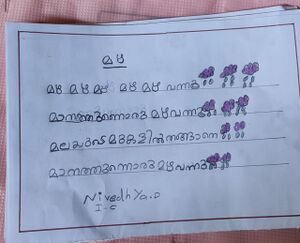 മഴ
മഴ മഴ മഴ മഴ മഴ വന്നു
മാനത്തുന്നൊരു മഴ വന്നു
മലയുടെ മുകളിൽ തങ്ങാതെ
മാനത്തുന്നൊരു മഴ വന്നു
Nivedhya.P
I-C